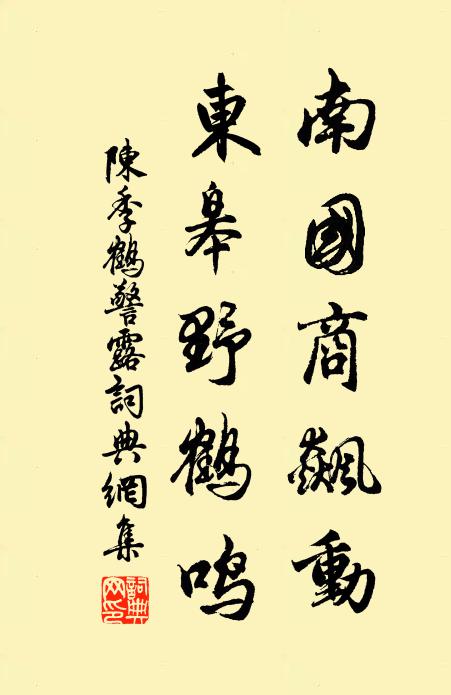 南國商飆動
東皋野鶴鳴
陳季鶴警露詞典網集
詞典網印